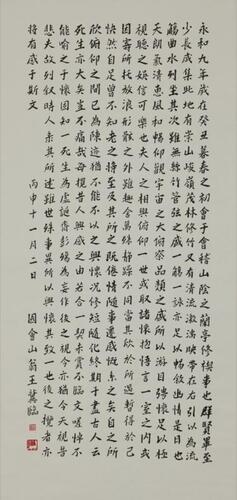 永和九年歲在癸丑暮春之初會于會稽山陰之蘭亭修禊事也群賢畢至
少長咸集此地有崇山峻嶺茂林修竹又有清流激湍映帶左右引以為流
觴曲水列坐其次雖無絲竹管弦之盛一觴一詠亦足以暢敘幽情是日也
天朗氣清惠風和暢仰觀宇宙之大俯察品類之盛所以游目騁懷足以極
視聽之娛信可樂也夫人之相與俯仰一世或取諸懷抱悟言一室之內或
因寄所托放浪形骸之外雖趣舍萬殊靜躁不同當其欣於所遇暫得於己
快然自足曾不知老之將至及其所之既倦情隨事遷感慨係之矣向之所
欣俯仰之間已為陳迹猶不能不以之興懷況修短隨化終期于盡古人云
死生亦大矣豈不痛哉每攬昔人興感之由若合一契未嘗不臨文嗟悼不
能喻之于懷固知一死生為虛誕齊彭殤為妄作後之視今亦猶今之視昔
悲夫故列敘時人錄其所述雖世殊事異所以興懷其致一也後之攬者亦
將有感于斯文 丙申十一月二日 會山翁王冀臨